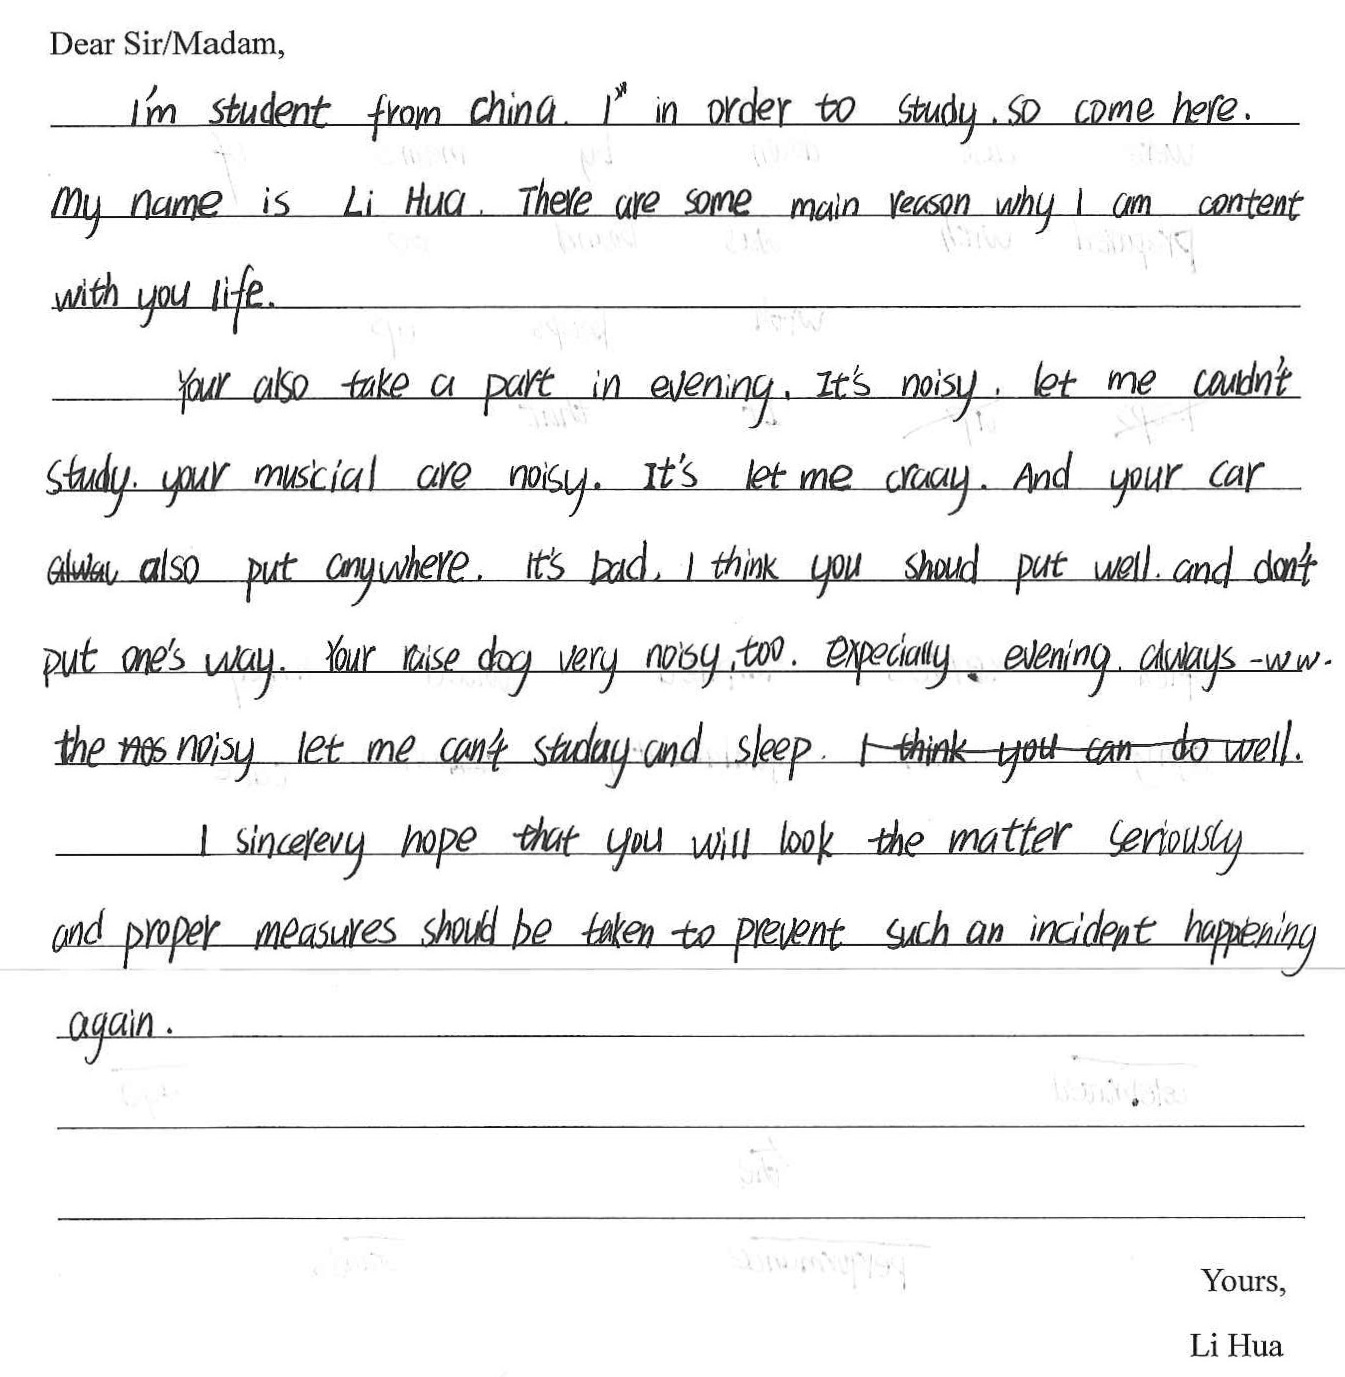 Dear Sir/Madam,
I'm student from China. I'm in order to study. so come here.
My name is Li Hua. There are some main reason why I am content
with you life.
Your also take a part in evening. It's noisy. let me coudn't
study. your muscial are noisy. It's let me craay. And your car
also put anywhere. It's bad. I think you shoud put well. and don't
put one's way. Your raise dog very noisy, too. expecially evening. always -ww.
the noisy let me can't studay and sleep. I think you can do well.
I sincerevy hope that you will look the matter seriously
and proper measures should be taken to prevent such an incident happening
again.
Yours,
Li Hua